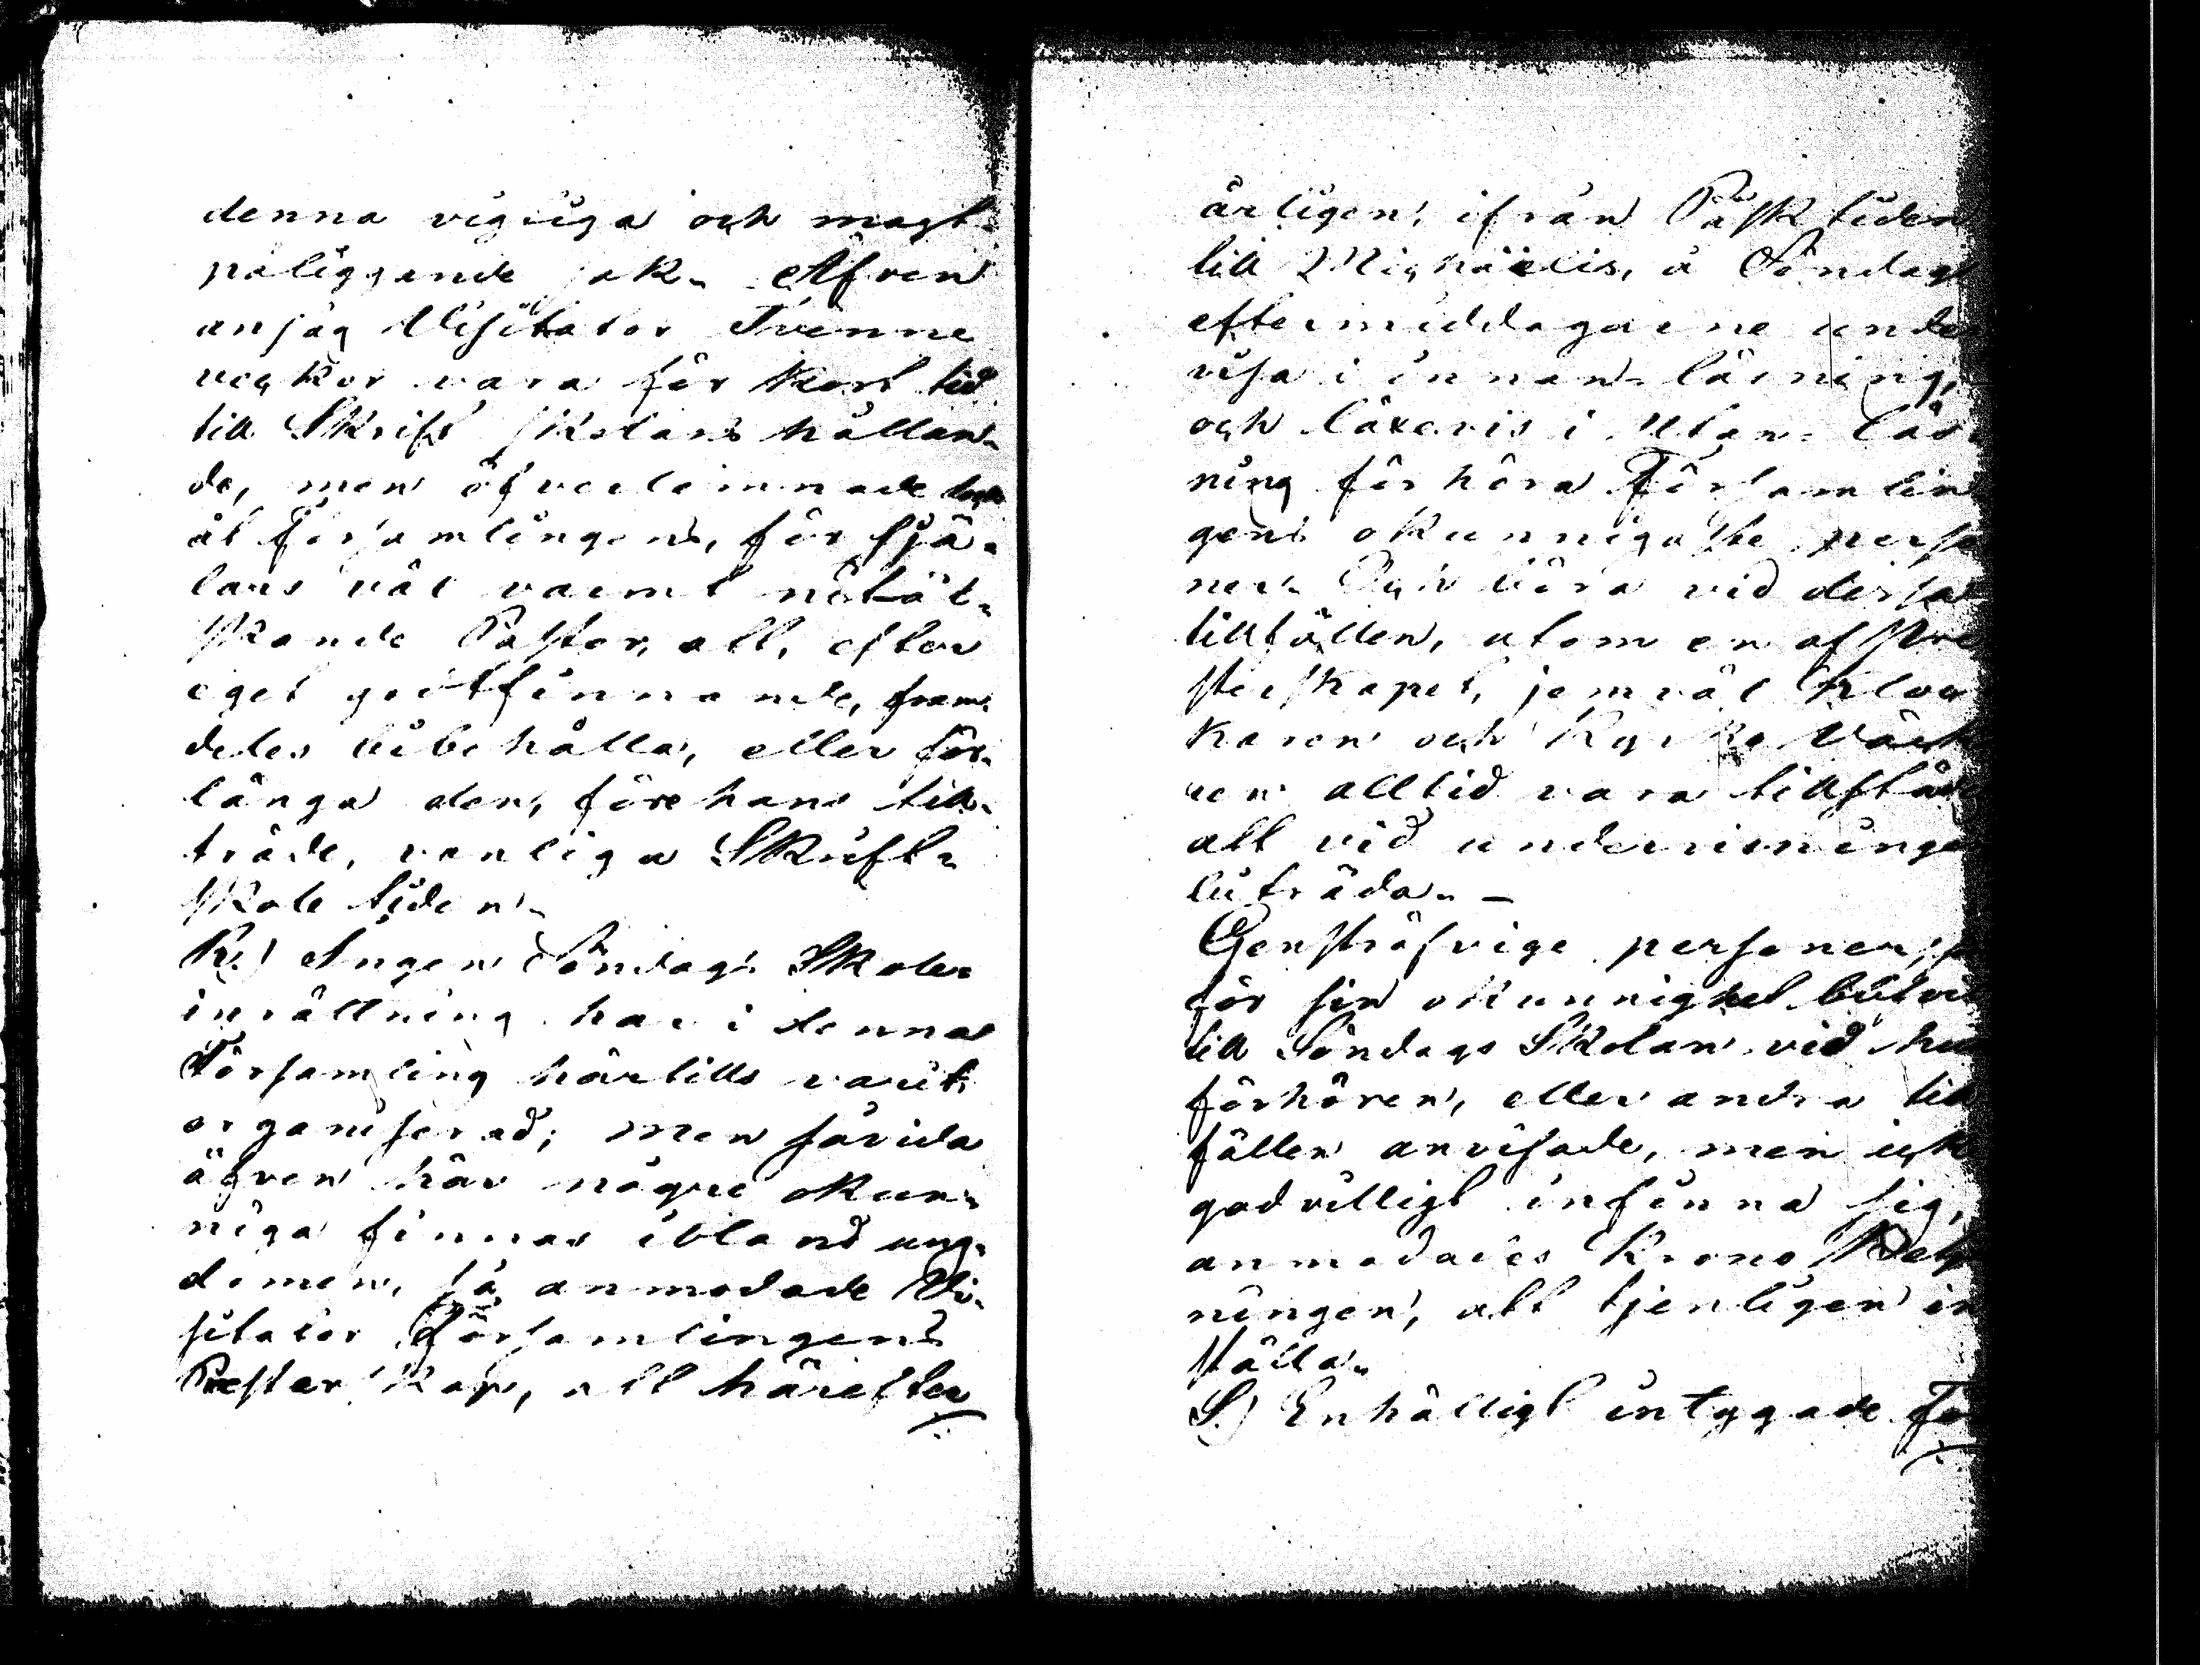 denna vigtiga och magt-
påliggande sak. Äfven
ansåg Visitator Tvenne
veckor vara för kort tid
till Skrift skolans hållan-
de, men öfverlemnade
åt församlingens, för Sjä-
lars väl varmt nitäl-
skande Pastor, att, efter
eget godtfinnande, fram-
deles bibehålla, eller för-
länga den, före hans till-
träde, vanliga Skrift-
skole tiden.
K.) Ingen Söndags Skole-
inrättning har i denna
Församling härtills varit
organiserad; men såvida
äfven här någre okun-
niga finnas ibland ung-
domen, så anmodade Vi-
sitator Församlingens
Presterskap, att härefter
årligen, ifrån Påsk tiden
till Michaëlis, å Söndags
eftermiddagarne under
visa i innan-läsning,
och läxevis i Utan-läs-
ning förhöra Församlin
gens okunnigaste perso
ner. Och böra vid dessa
tillfällen, utom en af Pre
sterskapet, jemväl Kloc
karen och Kyrko Väck
ren alltid vara tillstäde
att vid undervisninge
biträda. –
Gensträfvige personer,
för sin okunnighet
till Söndags Skolan vid hus
förhören, eller andra till
fällen anvisade, men icke
godvilligt infinna sig,
anmodades Krono Betj
ningen, att tjenligen in
ställa.
L.) Enhälligt intygade För